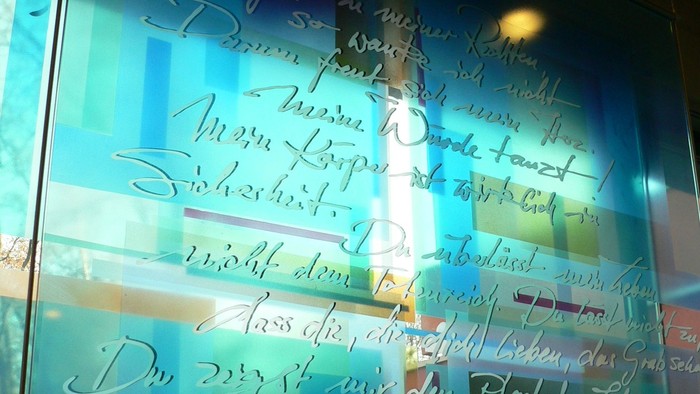 zu meiner Rechten,
so wanke ich nicht
Darum freut sich mein Herz.
Meine Würde tanzt!
Mein Körper ist wirklich in
Sicherheit.
Du überlässt mein Leben
nicht dem Totenreich. Du lässt nicht zu,
dass die, die dich lieben, das Grab
Du zeigst mir den